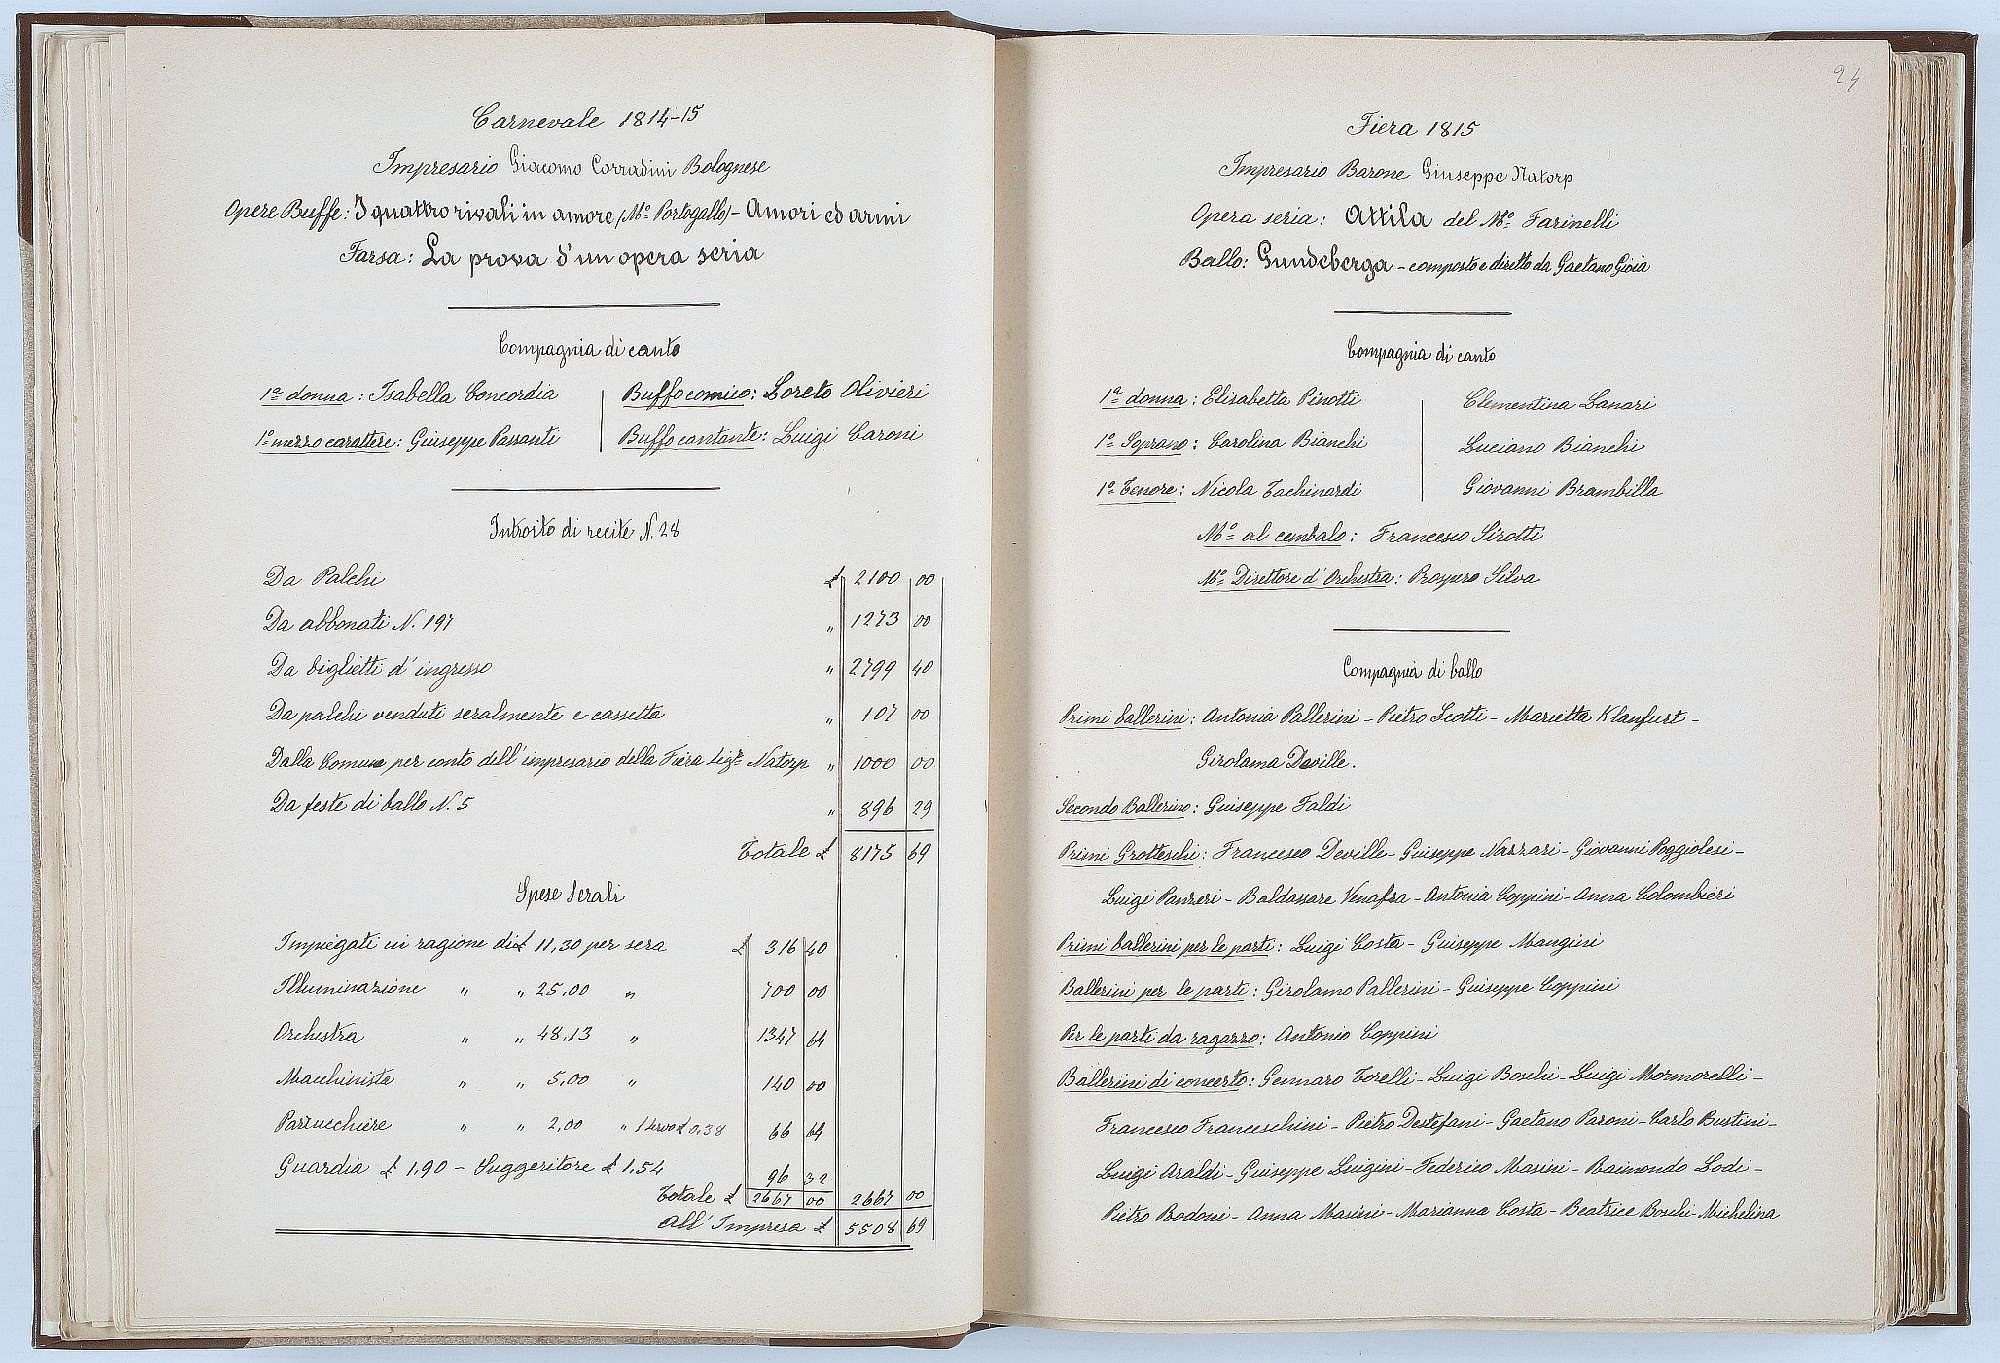 Carnevale 1814-15
Impresario Giacomo Corradini Bolognese
Opere Buffe: I quattro rivali in amore (Mo. Portogallo) - Amori ed armi
Farsa: La prova d'un opera seria
Compagnia di canto
1a donna: Isabella Concordia
1o mezzo carattere: Giuseppe Passanti
Buffo comico: Loreto Olivieri
Buffo cantante: Luigi Caroni
Introito di recite N. 28
Da Palchi £ 2100 00
Da abbonati N. 197 " 1273 00
Da biglietti d'ingresso " 2799 40
Da palchi venduti seralmente e cassetta " 107 00
Dalla Comune per conto dell'impresario della Fiera Sigr. Natorp " 1000 00
Da feste di ballo N. 5 " 896 29
Totale £ 8175 69
Spese Serali
Impiegati in ragione di £ 11,30 per sera £ 316 40
Illuminazione " " 25,00 " 700 00
Orchestra " " 48,13 " 1347 64
Macchinista " " 5,00 " 140 00
Parrucchiere " " 2,00 " £ 0,38 66 64
Guardia £ 1,90 - Suggeritore £ 1,54 96 32
Totale £ 2667 00 2667 00
All'Impresa £ 5508 69
24
Fiera 1815
Impresario Barone Giuseppe Natorp
Opera seria: Attila del Mo. Farinelli
Ballo: Gundeberga - composto e diretto da Gaetano Gioia
Compagnia di canto
1a donna: Elisabetta Pinotti
1o Soprano: Carolina Bianchi
1o Tenore: Nicola Tachinardi
Clementina Lanari
Luciano Bianchi
Giovanni Brambilla
Mo. al cembalo: Francesco Sirotti
Mo. Direttore d'Orchestra: Prospero Silva
Compagnia di ballo
Primi ballerini: Antonia Pallerini - Pietro Scotti - Marietta Klanfurt -
Girolama Deville.
Secondo Ballerino: Giuseppe Faldi
Primi Grotteschi: Francesco Deville - Giuseppe Nazzari - Giovanni Poggiolesi -
Luigi Panzeri - Baldassare Venafra - Antonia Coppini - Anna Colombieri
Primi ballerini per le parti: Luigi Costa - Giuseppe Mangini
Ballerini per le parti: Girolamo Pallerini - Giuseppe Coppini
Per le parti da ragazzo: Antonio Coppini
Ballerini di concerto: Gennaro Torelli - Luigi Boschi - Luigi Mormorelli -
Francesco Franceschini - Pietro Destefani - Gaetano Paroni - Carlo Bustini -
Luigi Araldi - Giuseppe Luigini - Federico Masini - Raimondo Lodi -
Pietro Bodoni - Anna Masini - Marianna Costa - Beatrice Boschi - Michelina